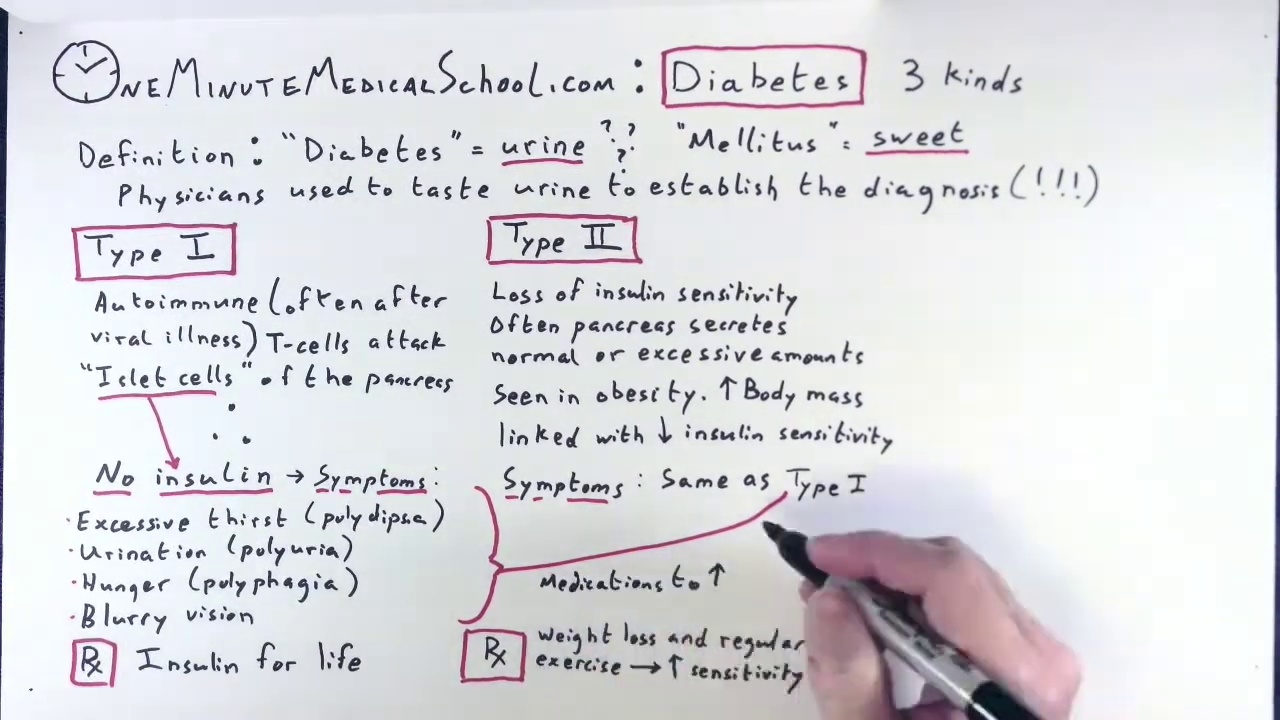 OneMinuteMedicalSchool.com : Diabetes 3 kinds
Definition : "Diabetes" = urine ? ? ? "Mellitus" = sweet
Physicians used to taste urine to establish the diagnosis (!!!)
Type I
Autoimmune (often after
viral illness) T-cells attack
"Islet cells" of the pancreas
∴
No insulin → Symptoms :
· Excessive thirst (polydipsia)
· Urination (polyuria)
· Hunger (polyphagia)
· Blurry vision
Rx Insulin for life
Type II
Loss of insulin sensitivity
Often pancreas secretes
normal or excessive amounts
Seen in obesity. ↑ Body mass
linked with ↓ insulin sensitivity
Symptoms : Same as Type I
Medications to ↑
Rx weight loss and regular
exercise → ↑ sensitivity